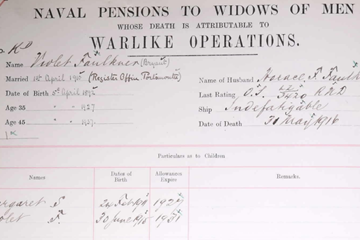 NAVAL PENSIONS TO WIDOWS OF MEN
WHOSE DEATH IS ATTRIBUTABLE TO
WARLIKE OPERATIONS.
Name Violet Faulkner (Bryant)
Married 1st April 191 (Register Office Portsmouth)
Date of Birth 5th April 1892
Age 35 " " 1927
Age 45 " " 1937
Name of Husband Horace F. Faulk
Last Rating O.S. 3420
Ship Indefatigable
Date of Death 31 May 1916
Particulars as to Children
Names
Dates of Birth
Allowances Expire
Remarks.
argaret S. 24 Feb 1927
olet F. 30 June 1931